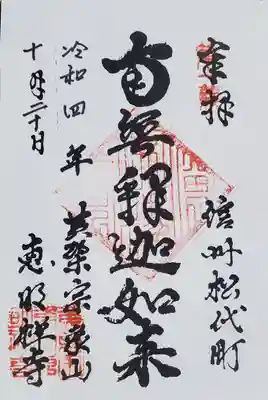 奉拝
信州松代町
南無釋迦如来
令和四年
十月二十日
黄檗宗象山
恵明禅寺